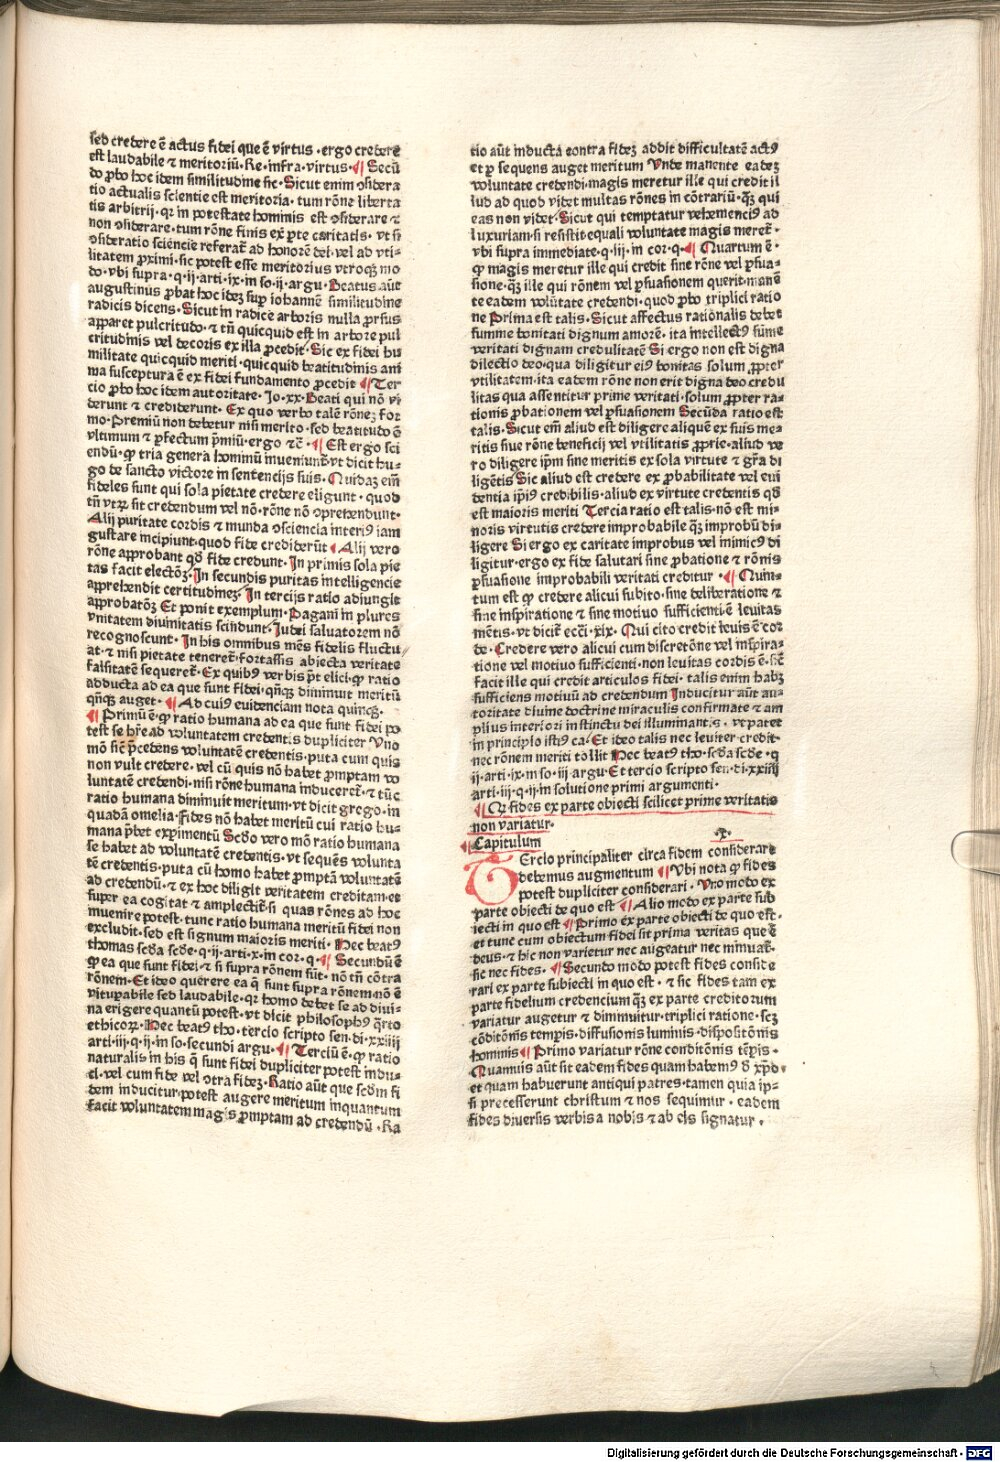 sed credere ē actus fidei que ē virtus · ergo credere
est laudabile ⁊ meritoriū · Re · infra · virtus · ¶ Secū
do ꝓbo hoc idem similitudine sic · Sicut enim ꝯsidera
tio actualis scientie est meritoria · tum rōne liberta
tis arbitrij · qꝛ in potestate hominis est ꝯsiderare ⁊
non ꝯsiderare · tum rōne finis ex ꝑte caritatis · vt si
ꝯsideratio sciēncie referat᷑ ad honorē dei · vel ad vti-
litatem ꝓximi · sic potest esse meritorius vtroqꝫ mo
do · vbi supra · q · ij · arti · ix · in so · ij · argu · Beatus aūt
augustinus ꝓbat hoc ideꝫ suꝑ iohannē similitudine
radicis dicens · Sicut in radice arboris nulla ꝓrsus
apparet pulcritudo · ⁊ tn̄ quicquid est in arbore pul
critudinis vel decoris ex illa ꝓcedit · Sic ex fidei hu
militate quicquid meriti · quicquid beatitudinis ani
ma susceptura ē ex fidei fundamento ꝓcedit ¶ Ter
cio ꝓbo hoc idem autoritate · Jo · xx · Beati qui nō vi
derunt ⁊ crediderunt · Ex quo verbo talē rōneꝫ for
mo · Premiū non debetur nisi merito · sed beatitudo ē
vltimum ⁊ ꝑfectum p̄miū · ergo ⁊c̄ · ¶ Est ergo sci
endū · ꝙ tria genera hominū inueniunt᷑ vt dicit hu-
go de sancto victore in sentencijs suis · Quidaꝫ em̄
fideles sunt qui sola pietate credere eligunt · quod
tn̄ vtꝝ sit credendum vel nō · rōne nō ꝯprehendunt ·
Alij puritate cordis ⁊ munda ꝯsciencia interiꝰ iam
gustare incipiunt · quod fide crediderūt ¶ Alij vero
rōne approbant qđ fide credunt · In primis sola pie
tas facit electōꝫ · In secundis puritas intelligencie
apprehendit certitudineꝫ · In tercijs ratio adiungit
approbatōꝫ Et ponit exemplum · Pagani in plures
vnitatem diuinitatis scindunt · Judei saluatorem nō
recognoscunt · In his omnibus mēs fidelis fluctu
at · ⁊ nisi pietate teneret᷑ · fortassis abiecta veritate
falsitatē sequeret᷑ · Ex quibꝰ verbis pt̄ elici · ꝙ ratio
adducta ad ea que sunt fidei · qn̄qꝫ diminuit meritū
qn̄qꝫ auget · ¶ Ad cuiꝰ euidenciam nota quinqꝫ ·
¶ Primū ē · ꝙ ratio humana ad ea que sunt fidei po
test se hr̄e ad voluntatem credentis dupliciter Vno
mō sic̄ p̄cedens voluntatē credentis · puta cum quis
non vult credere · vel cū quis nō habet ꝓmptam vo
luntatē credendi · nisi rōne humana induceret᷑ · ⁊ tūc
ratio humana diminuit meritum · vt dicit grego · in
quadā omelia · Fides nō habet meritū cui ratio hu-
mana p̄bet expimentū Scđo vero mō ratio humana
se habet ad voluntatē credentis · vt sequēs volunta
tē credentis · puta cū homo habet ꝓmptā voluntatē
ad credendū · ⁊ ex hoc diligit veritatem creditam · et
super ea cogitat ⁊ amplectit᷑ · si quas rōnes ad hoc
inuenire potest · tunc ratio humana meritū fidei non
excludit · sed est signum maioris meriti · Nec beatꝰ
thomas scđa scđe · q · ij · arti · x · in cor · q · ¶ Secundū ē
ꝙ ea que sunt fidei · ⁊ si supra rōnem sūt · nō tn̄ cōtra
rōnem · Et ideo querere ea q̄ sunt supra rōnem · nō ē
vituꝑabile sed laudabile · qꝛ homo debet se ad diui-
na erigere quantū potest · vt dicit philosophꝰ q̄rto
ethicoꝝ · Nec beatꝰ tho · tercio scripto sen · di · xxiiij
arti · iij · q · ij · in so · secundi argu · ¶ Terciū ē · ꝙ ratio
naturalis in his q̄ sunt fidei dupliciter potest indu-
ci · vel cum fide vel ꝯtra fideꝫ · Ratio aūt que scđm fi
dem inducitur · potest augere meritum inquantum
facit voluntatem magis ꝓmptam ad credendū · Ra
tio aūt inducta contra fideꝫ addit difficultatē actꝰ
et ꝑ sequens auget meritum Vnde manente eadeꝫ
voluntate credendi · magis meretur ille qui credit il
lud ad quod videt multas rōnes in cōtrariū · qꝫ qui
eas non videt · Sicut qui temptatur vehemencius ad
luxuriam · si resistit equali voluntate magis meret᷑ ·
vbi supra immediate · q · iij · in cor · q · ¶ Quartum ē ·
ꝙ magis meretur ille qui credit sine rōne vel ꝑsua-
sione · qꝫ ille qui rōnem vel ꝑsuasionem querit · manē
te eadem volūtate credendi · quod ꝓbo triplici ratio
ne Prima est talis · Sicut affectus rationalis debet
summe bonitati dignum amorē · ita intellectꝰ sūme
veritati dignam credulitatē Si ergo non est digna
dilectio deo · qua diligitur eiꝰ bonitas solum ꝓpter
vtilitatem · ita eadem rōne non erit digna deo credu
litas qua assentitur prime veritati · solum ꝓpter ra-
tionis ꝓbationem vel ꝑsuasionem Secūda ratio est
talis · Sicut em̄ aliud est diligere aliquē ex suis me-
ritis siue rōne beneficij vel vtilitatis ꝓprie · aliud ve
ro diligere ip̄m sine meritis ex sola virtute ⁊ gr̄a di
ligētis Sic aliud est credere ex ꝓbabilitate vel eui
dentia ip̄iꝰ credibilis · aliud ex virtute credentis qđ
est maioris meriti Tercia ratio est talis · nō est mi-
noris virtutis credere improbabile qꝫ improbū di-
ligere Si ergo ex caritate improbus vel inimicꝰ di
ligitur · ergo ex fide salutari sine ꝓbatione ⁊ rōnis
ꝑsuasione improbabili veritati creditur · ¶ Quin-
tum est ꝙ credere alicui subito · sine deliberatione ⁊
sine inspiratione ⁊ sine motiuo sufficienti · ē leuitas
mētis · vt dicit᷑ ecc̄i · xix · Qui cito credit leuis ē cor
de · Credere vero alicui cum discretōne vel inspira-
tione vel motiuo sufficienti · non leuitas cordis ē · sic̄
facit ille qui credit articulos fidei · talis enim habꝫ
sufficiens motiuū ad credendum Inducitur aūt au-
toritate diuine doctrine miraculis confirmate ⁊ am
plius interiori instinctu dei illuminantis · vt patet
in principio istiꝰ ca · Et ideo talis nec leuiter credit ·
nec rōnem meriti tollit Nec beatꝰ tho · scđa scđe · q
ij · arti · ix · in so · iij argu · Et tercio scripto sen · di · xxiiij
arti · iij · q · ij · in solutione primi argumenti ·
¶ Qꝛ fides ex parte obiecti scilicet prime veritatis
non variatur ·
¶ Capitulum · x ·
TErcio principaliter circa fidem considerare
debemus augmentum ¶ Vbi nota ꝙ fides
potest dupliciter considerari · Vno modo ex
parte obiecti de quo est ¶ Alio modo ex parte sub
iecti in quo est ¶ Primo ex parte obiecti de quo est ·
et tunc cum obiectum fidei sit prima veritas que ē
deus · ⁊ hic non varietur nec augeatur nec minuat᷑ ·
sic nec fides · ¶ Secundo modo potest fides conside
rari ex parte subiecti in quo est · ⁊ sic fides tam ex
parte fidelium credencium qꝫ ex parte creditorum
variatur augetur ⁊ diminuitur · triplici ratione · scꝫ
cōditōnis temꝑis · diffusionis luminis · dispositōnis
hominis ¶ Primo variatur rōne conditōnis tēꝑis ·
Quamuis aūt sit eadem fides quam habemꝰ đ xp̄o ·
et quam habuerunt antiqui patres · tamen quia ip-
si precesserunt christum ⁊ nos sequimur · eadem
fides diuersis verbis a nobis ⁊ ab eis signatur ·
Digitalisierung gefördert durch die Deutsche Forschungsgemeinschaft · DFG